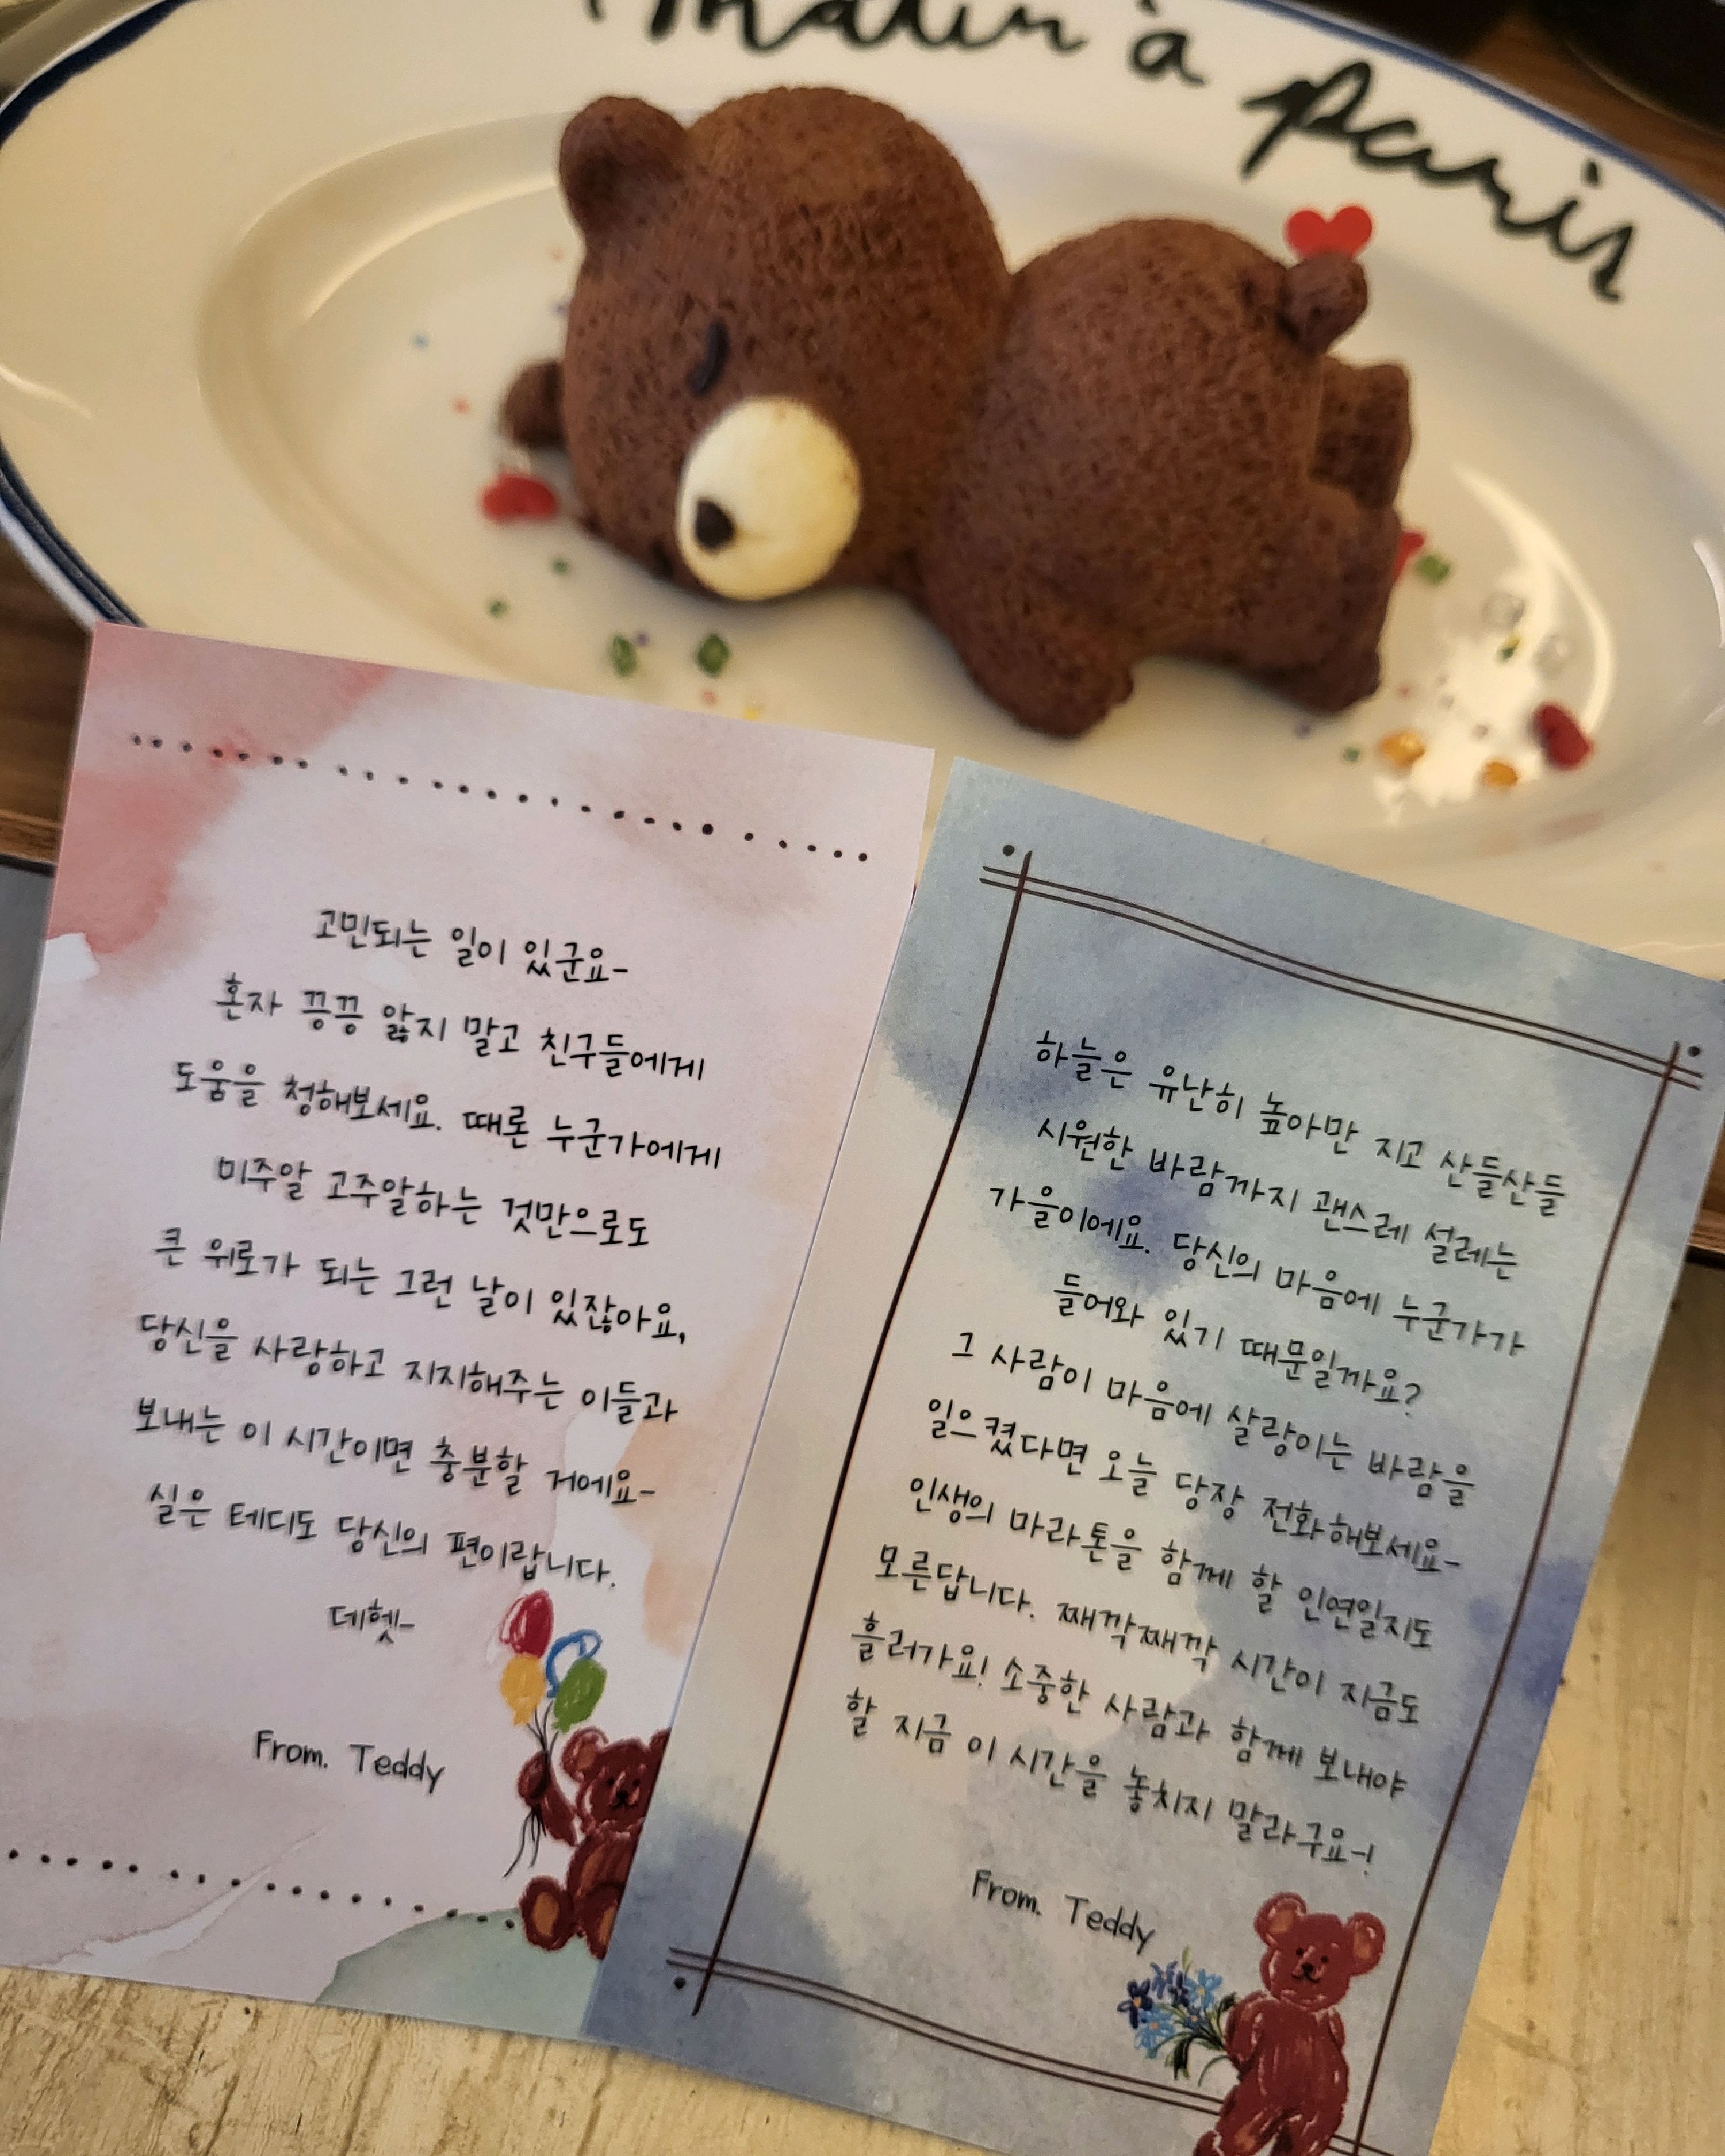 matin à paris
고민되는 일이 있군요-
혼자 끙끙 앓지 말고 친구들에게
도움을 청해보세요. 때론 누군가에게
미주알 고주알하는 것만으로도
큰 위로가 되는 그런 날이 있잖아요,
당신을 사랑하고 지지해주는 이들과
보내는 이 시간이면 충분할 거에요-
실은 테디도 당신의 편이랍니다.
데헷-
From. Teddy
하늘은 유난히 높아만 지고 산들산들
시원한 바람까지 괜스레 설레는
가을이에요. 당신의 마음에 누군가가
들어와 있기 때문일까요?
그 사람이 마음에 살랑이는 바람을
일으켰다면 오늘 당장 전화해보세요-
인생의 마라톤을 함께 할 인연일지도
모른답니다. 째깍째깍 시간이 지금도
흘러가요! 소중한 사람과 함께 보내야
할 지금 이 시간을 놓치지 말라구요-!
From. Teddy